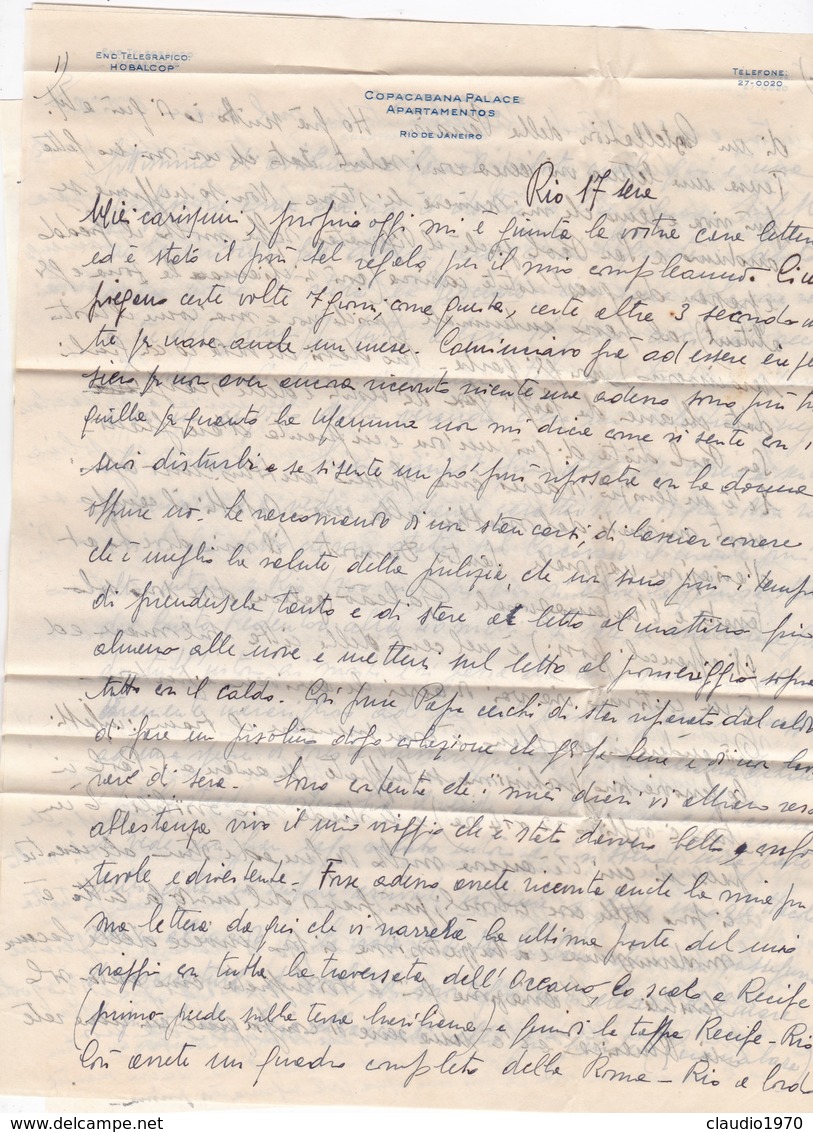 1)
END. TELEGRAFICO:
HOBALCOP
TELEFONE:
27-0020
COPACABANA PALACE
APARTAMENTOS
RIO DE JANEIRO
Rio 17 sera
Miei carissimi, proprio oggi mi è giunta la vostra cara letter
ed è stato il più bel regalo per il mio compleanno.
piegano certe volte 7 giorni, come questa, certe altre 3 secondo
tre per nave anche un mese. Cominciavo già ad essere in pe
siero per non aver ancora ricevuto niente ma adesso sono più
quilla per quanto la Mamma non mi dica come si sente con i
suoi disturbi e se si sente un po' più riposata con la donna
oppure no. Le raccomando di non stancarsi, di lasciar correre
che è meglio la salute della pulizia, che non sono più i tempi
di prendersela tanto e di stare a letto al mattino fino
almeno alle nove e mettersi sul letto al pomeriggio sopra
tutto con il caldo. Così pure Papà cerchi di star riparato dal caldo
di fare un pisolino dopo colazione che gli fa bene e di non lavo
rare di sera. Sono contenta che i miei diari vi abbiano reso
abbastanza vivo il mio viaggio che è stato davvero bello, confor
tevole e divertente. Forse adesso avrete ricevuta anche la mia pri
ma lettera da qui che vi narrerà la ultima parte del mio
viaggio con tutta la traversata dell'Oceano, lo scalo a Recife
(primo piede sulla terra brasiliana) e quindi la tappa Recife-Rio
Così avrete un quadro completo della Roma-Rio a bord
claudio1970